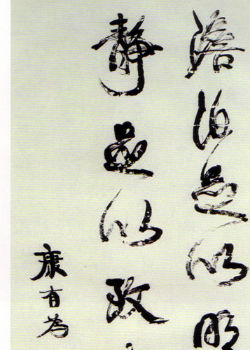 澹泊足以明
靜足以致
康有為